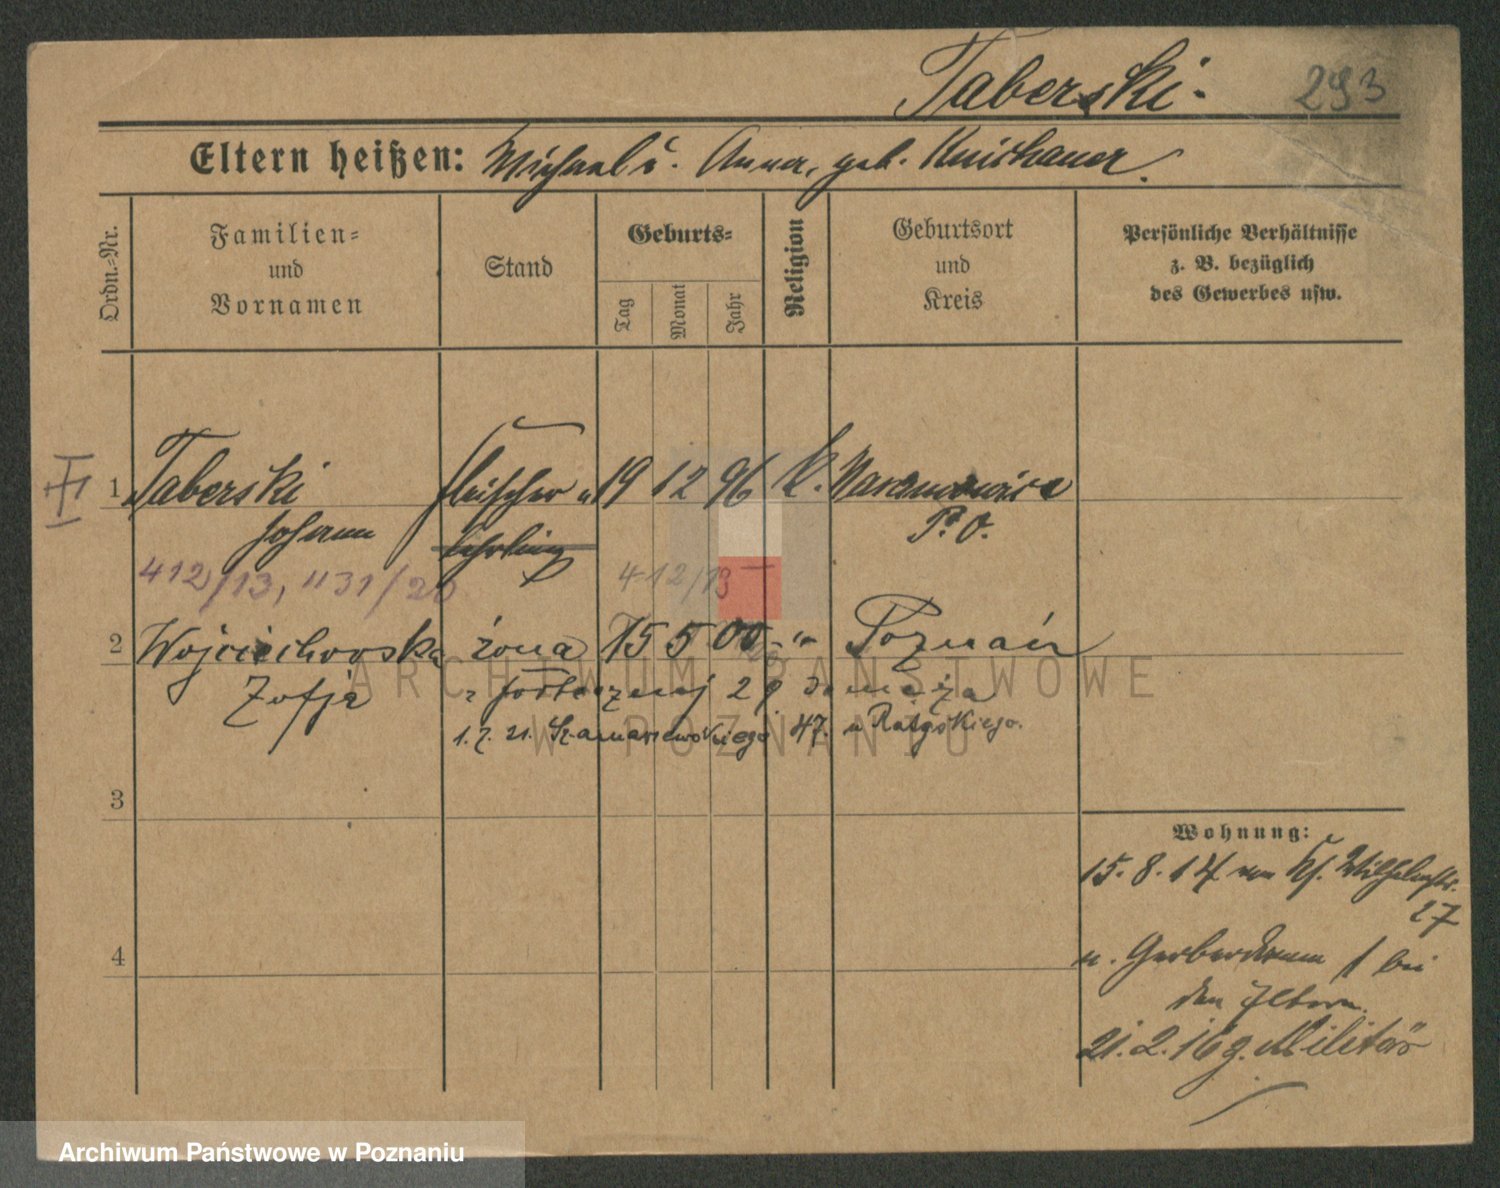 Taberski. 293
Eltern heißen: Michael u. Anna, geb.
Ordn.-Nr.
Familien- und Vornamen
Stand
Geburts-
Tag
Monat
Jahr
Religion
Geburtsort und Kreis
Persönliche Verhältnisse z. B. bezüglich des Gewerbes usw.
1 Taberski Fleischer 19 12 96 K.
Johann Lehrling P. O.
412/13, 1131/20 412/13
2 Wojciechowska żona 15 5 00 -"- Poznań
Zofja 29 do męża
1. 7. 21. Szamarzewskiego 47. u Ratajskiego.
3
Wohnung:
15. 8. 14 von Wilhelmstr.
27
n. Gerberdamm 1 bei
4
den Eltern
21. 2. 16 z. Militär
ARCHIWUM PAŃSTWOWE
W POZNANIU
Archiwum Państwowe w Poznaniu